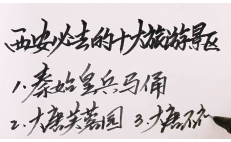 西安必去的十大旅游景区
1.秦始皇兵马俑
2.大唐芙蓉园 3.大唐不